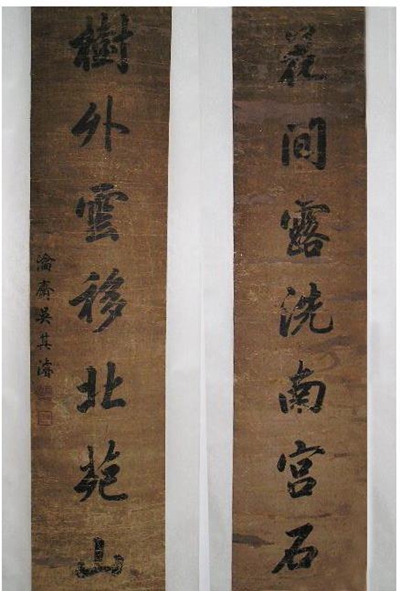 花间露洗南宫石
樹外雲移北苑山
瀹齋吴其濬